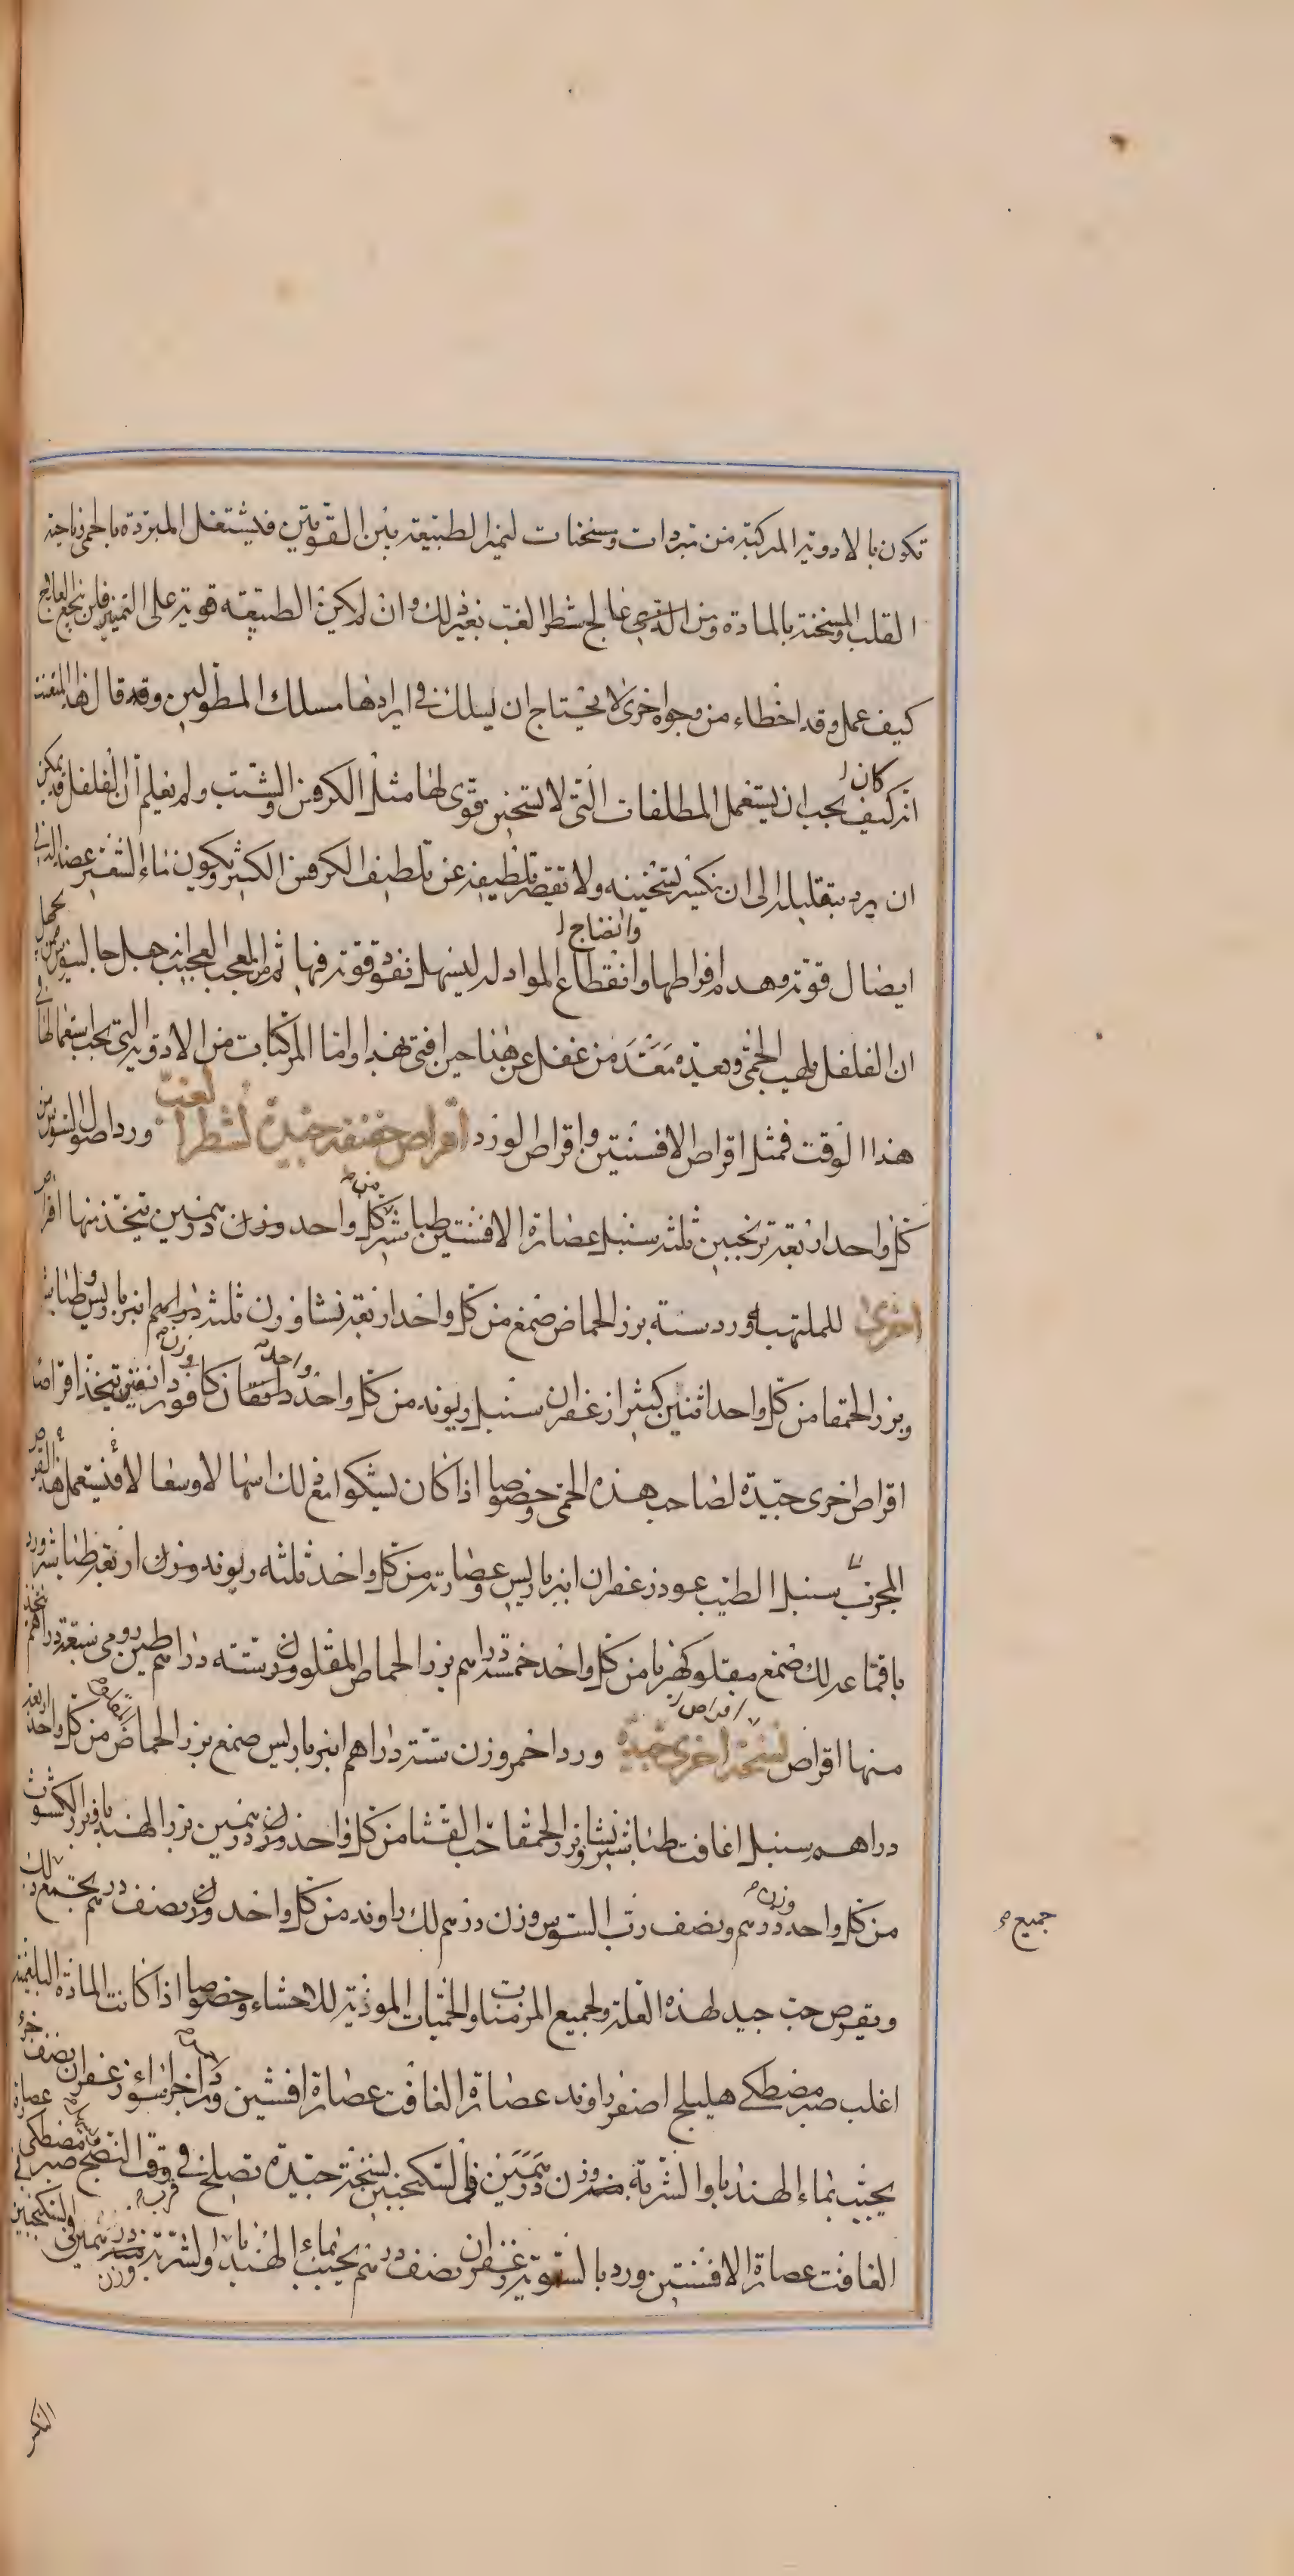 تكون بالادوية المركبة من مبردات ومسخنات لتميز الطبيعة بين القوتين فيشتغل المبردة بالحمى وناحية
القلب والمسخنة بالمادة ومن الذى عالج شطر الغب بغير ذلك وان لم يكن الطبيعة قوية على التمييز فلن ينجع العلاج
كيف عمل وقد اخطاء من وجوه اخرى لا يحتاج ان يسلك فى ايرادها مسلك المطولين وقد قال هذا المتعنت
انه كيف كان يجب ان يستعمل الملطفات التى لا تسخن بقوى لها مثل الكرفس والشبت ولم يعلم ان الفلفل قد يمكن
ان يرد بتقليله الى ان يكسر تسخينه ولا يقصر تلطيفه عن تلطيف الكرفس الكثير ويكون ماء الشعير
ايصال قوته وهدم افراطها وانضاج وانقطاع المواد له ليسهل نفوذ قوته فيها ثم من المعجب العجيب انه جهل جالينوس
ان الفلفل يلهب الحمى وبعده من غفل عن هذا حين افتى بهذا واما المركبات من الادوية التى يجب استعمالها فى
هذا الوقت فمثل اقراص الافسنتين واقراص الورد اقراص خفيفة جيدة لشطر الغب ورد اصول السوس من
كل واحد اربعة ترنجبين ثلثة سنبل عصارة الافسنتين طباشير من كل واحد وزن درهمين يتخذ منها اقراص
اخرى للملتهبة ورد ستة بزر الحماض صمغ من كل واحد اربعة نشا وزن ثلثة دراهم انبرباريس وطباشير
وبزر الحمقا من كل واحد اثنين كثيرا زعفران سنبل ريوند من كل واحد كافور وزن دانقين يتخذ اقراصا
اقراص اخرى جيدة لصاحب هذه الحمى وخصوصا اذا كان يشكوا مع ذلك اسهالا وسعالا فيستعمل هذا القرص
المجرب سنبل الطيب عود زعفران انبرباريس وعصارته من كل واحد ثلثه ريوند وزن اربعة طباشير ورد
باقماعه لك صمغ مقلو كهربا من كل واحد خمسة دراهم بزر الحماض المقلو وزن ستة دراهم طين رومى سبعة دراهم يتخذ
منها اقراص نسخة اقراص اخرى جيدة ورد احمر وزن ستة دراهم انبرباريس صمغ بزر الحماض من كل واحد اربعة
دراهم سنبل غافت طباشير نشا وبزر الحمقا حب القثا من كل واحد وزن درهمين بزر الهندبا وبزر الكشوث
من كل واحد وزن درهم ونصف رب السوس وزن درهم لك راوند من كل واحد وزن نصف درهم يجمع ذلك
جميع
ويقرص حب جيد لهذه العلة ولجميع المزمنات والحميات الموذية للاحشاء وخصوصا اذا كانت المادة البلغمية
اغلب صبر مصطكى هليلج اصفر راوند عصارة الغافت عصارة افسنتين ورد اجزاء سواء زعفران نصف جزء
يحبب بماء الهندبا والشربة وزن درهمين فى السكنجبين نسخة جيدة تصلح فى قرب وقت النضج صبر مصطكى عصارة
الغافت عصارة الافسنتين ورد بالسوية زعفران نصف درهم يحبب بماء الهندبا والشربة وزن درهمين فى السكنجبين